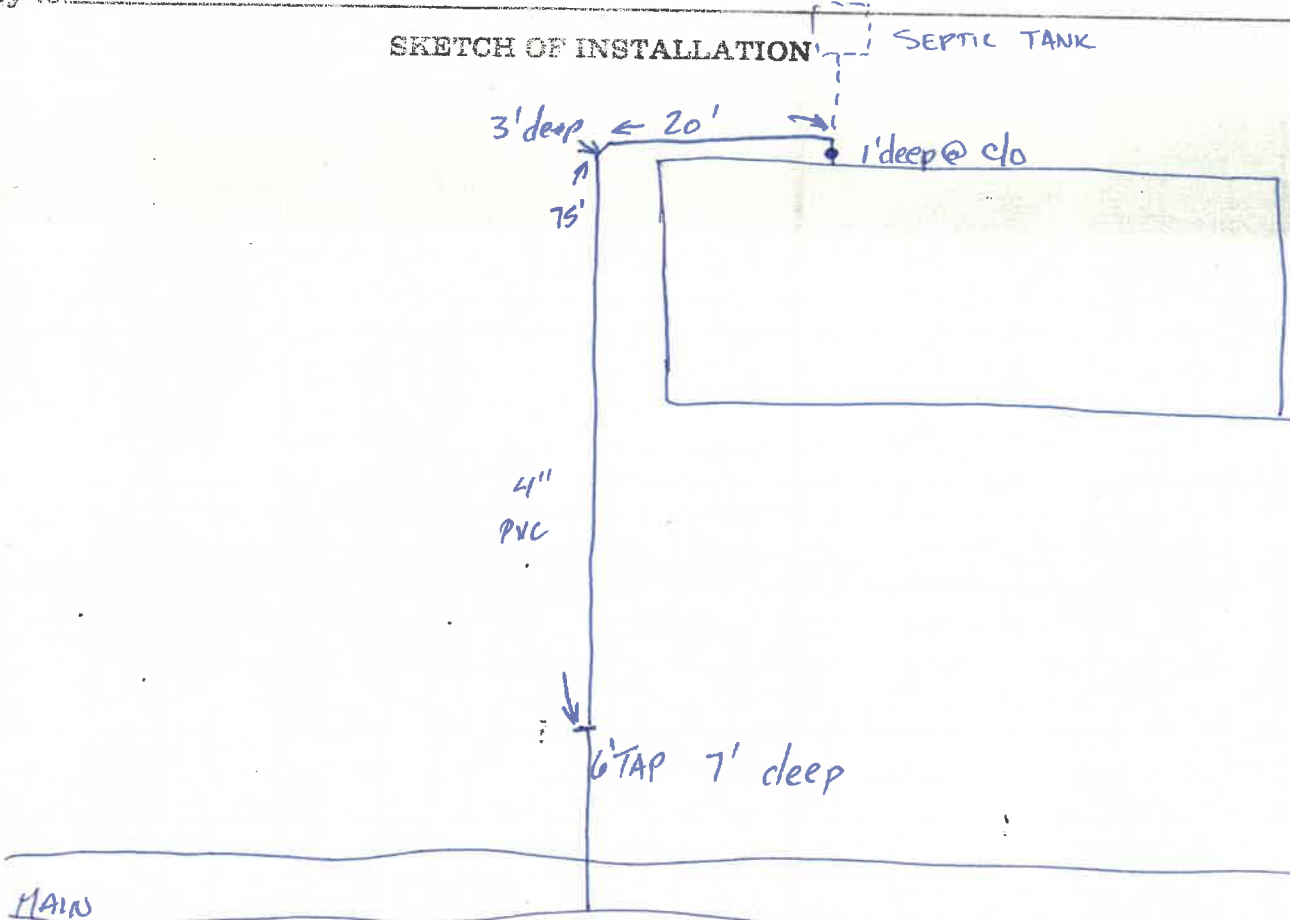 SKETCH OF INSTALLATION
SEPTIC TANK
3'deep ← 20'
1'deep @ c/o
75'
4"
PVC
6'TAP 7' deep
MAIN